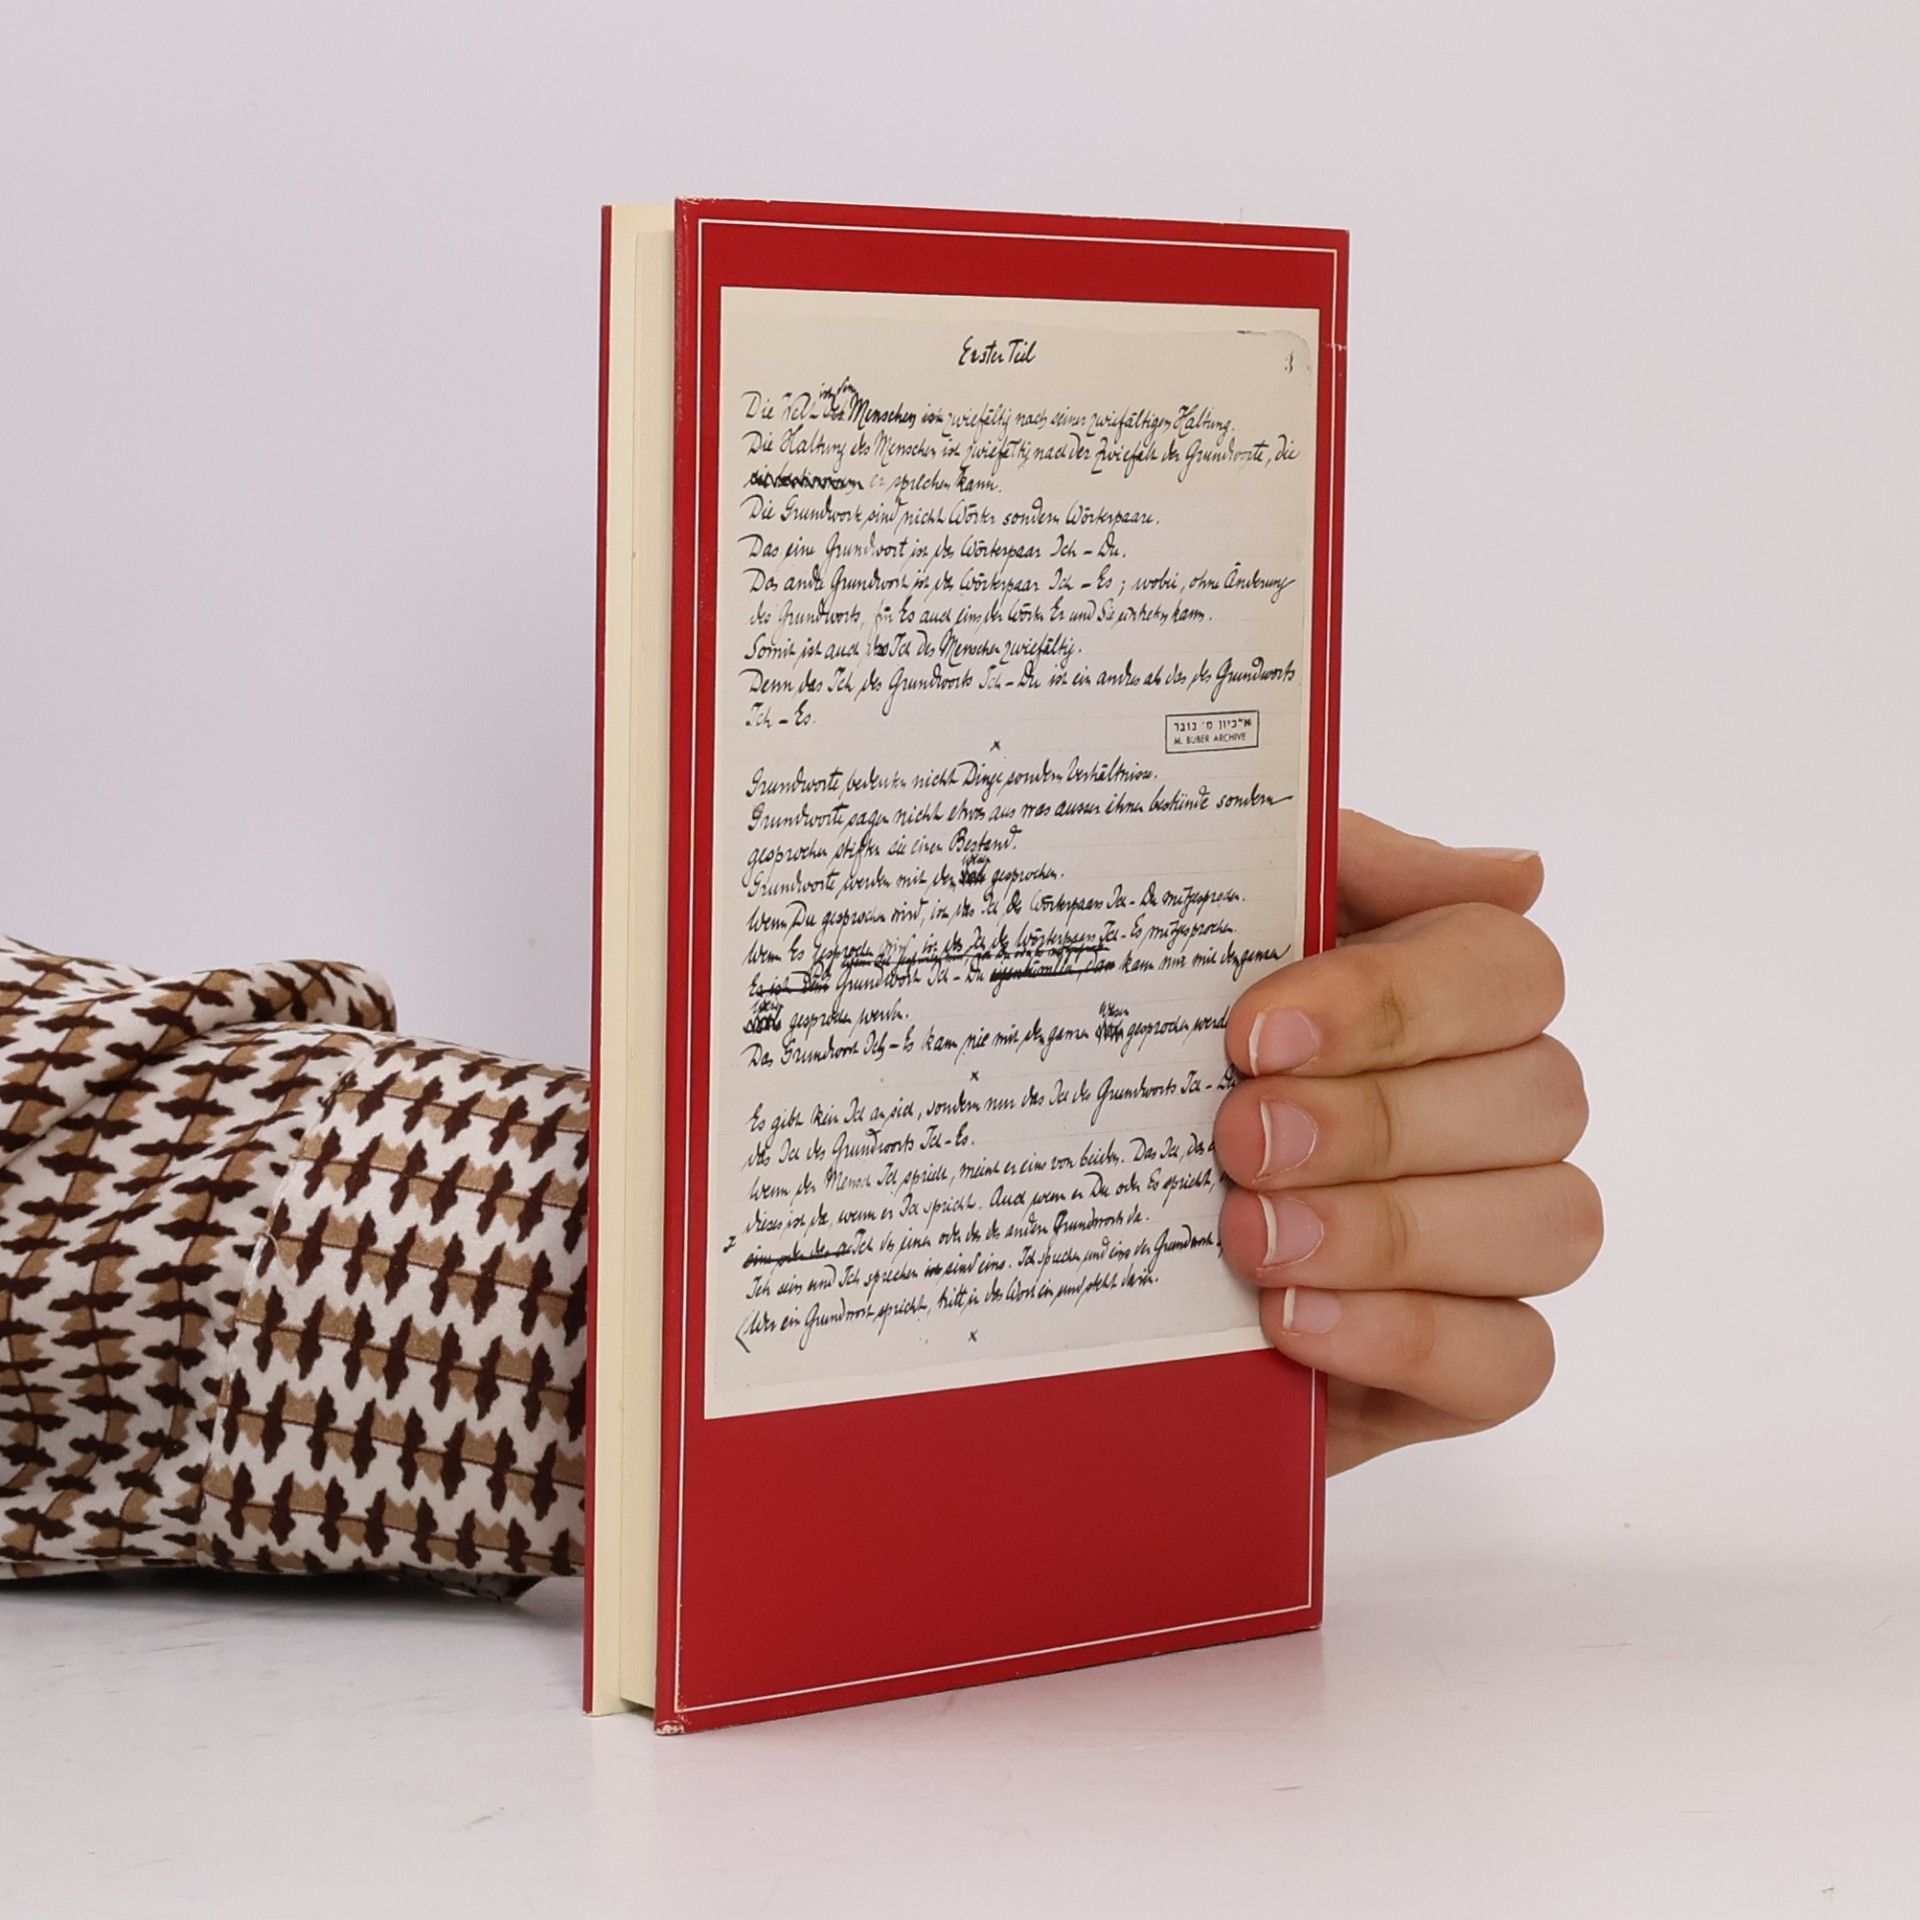 Erster Teil
3
ist dem
Die Welt Menschen ist zwiefältig nach seiner zwiefältigen Haltung.
Die Haltung des Menschen ist zwiefältig nach der Zwiefalt der Grundworte, die
er sprechen kann.
Die Grundworte sind nicht Wörter sondern Wörterpaare.
Das eine Grundwort ist das Wörterpaar Ich – Du.
Das andre Grundwort ist das Wörterpaar Ich – Es; wobei, ohne Änderung
des Grundworts, für Es auch eins der Worte Er und Sie eintreten kann.
Somit ist auch das Ich des Menschen zwiefältig.
Denn das Ich des Grundworts Ich – Du ist ein andres als das des Grundworts
Ich – Es.
ארכיון מ. בובר
M. BUBER ARCHIVE
x
Grundworte bedeuten nicht Dinge sondern Verhältnisse.
Grundworte sagen nicht etwas aus was ausser ihnen bestünde sondern
gesprochen stiften sie einen Bestand.
Wesen
Grundworte werden mit dem gesprochen.
Wenn Du gesprochen wird, ist das Ich des Wörterpaars Ich – Du mitgesprochen.
Wenn Es gesprochen wird, ist das Ich des Wörterpaars Ich – Es mitgesprochen.
Es ist Grundwort Ich – Du kann nur mit dem ganzen
Wesen
gesprochen werden.
Wesen
Das Grundwort Ich – Es kann nie mit dem ganzen gesprochen werd
x
Es gibt kein Ich an sich, sondern nur das Ich des Grundworts Ich – Du
das Ich des Grundworts Ich – Es.
Wenn der Mensch Ich spricht, meint er eins von beiden. Das Ich, das
dieses ist da, wenn er Ich spricht. Auch wenn er Du oder Es spricht,
eine oder das Ich des einen oder das des andern Grundworts da.
Ich sein und Ich sprechen sind eins. Ich sprechen und eins der Grundworte
Wer ein Grundwort spricht, tritt in das Wort ein und steht darin.
x